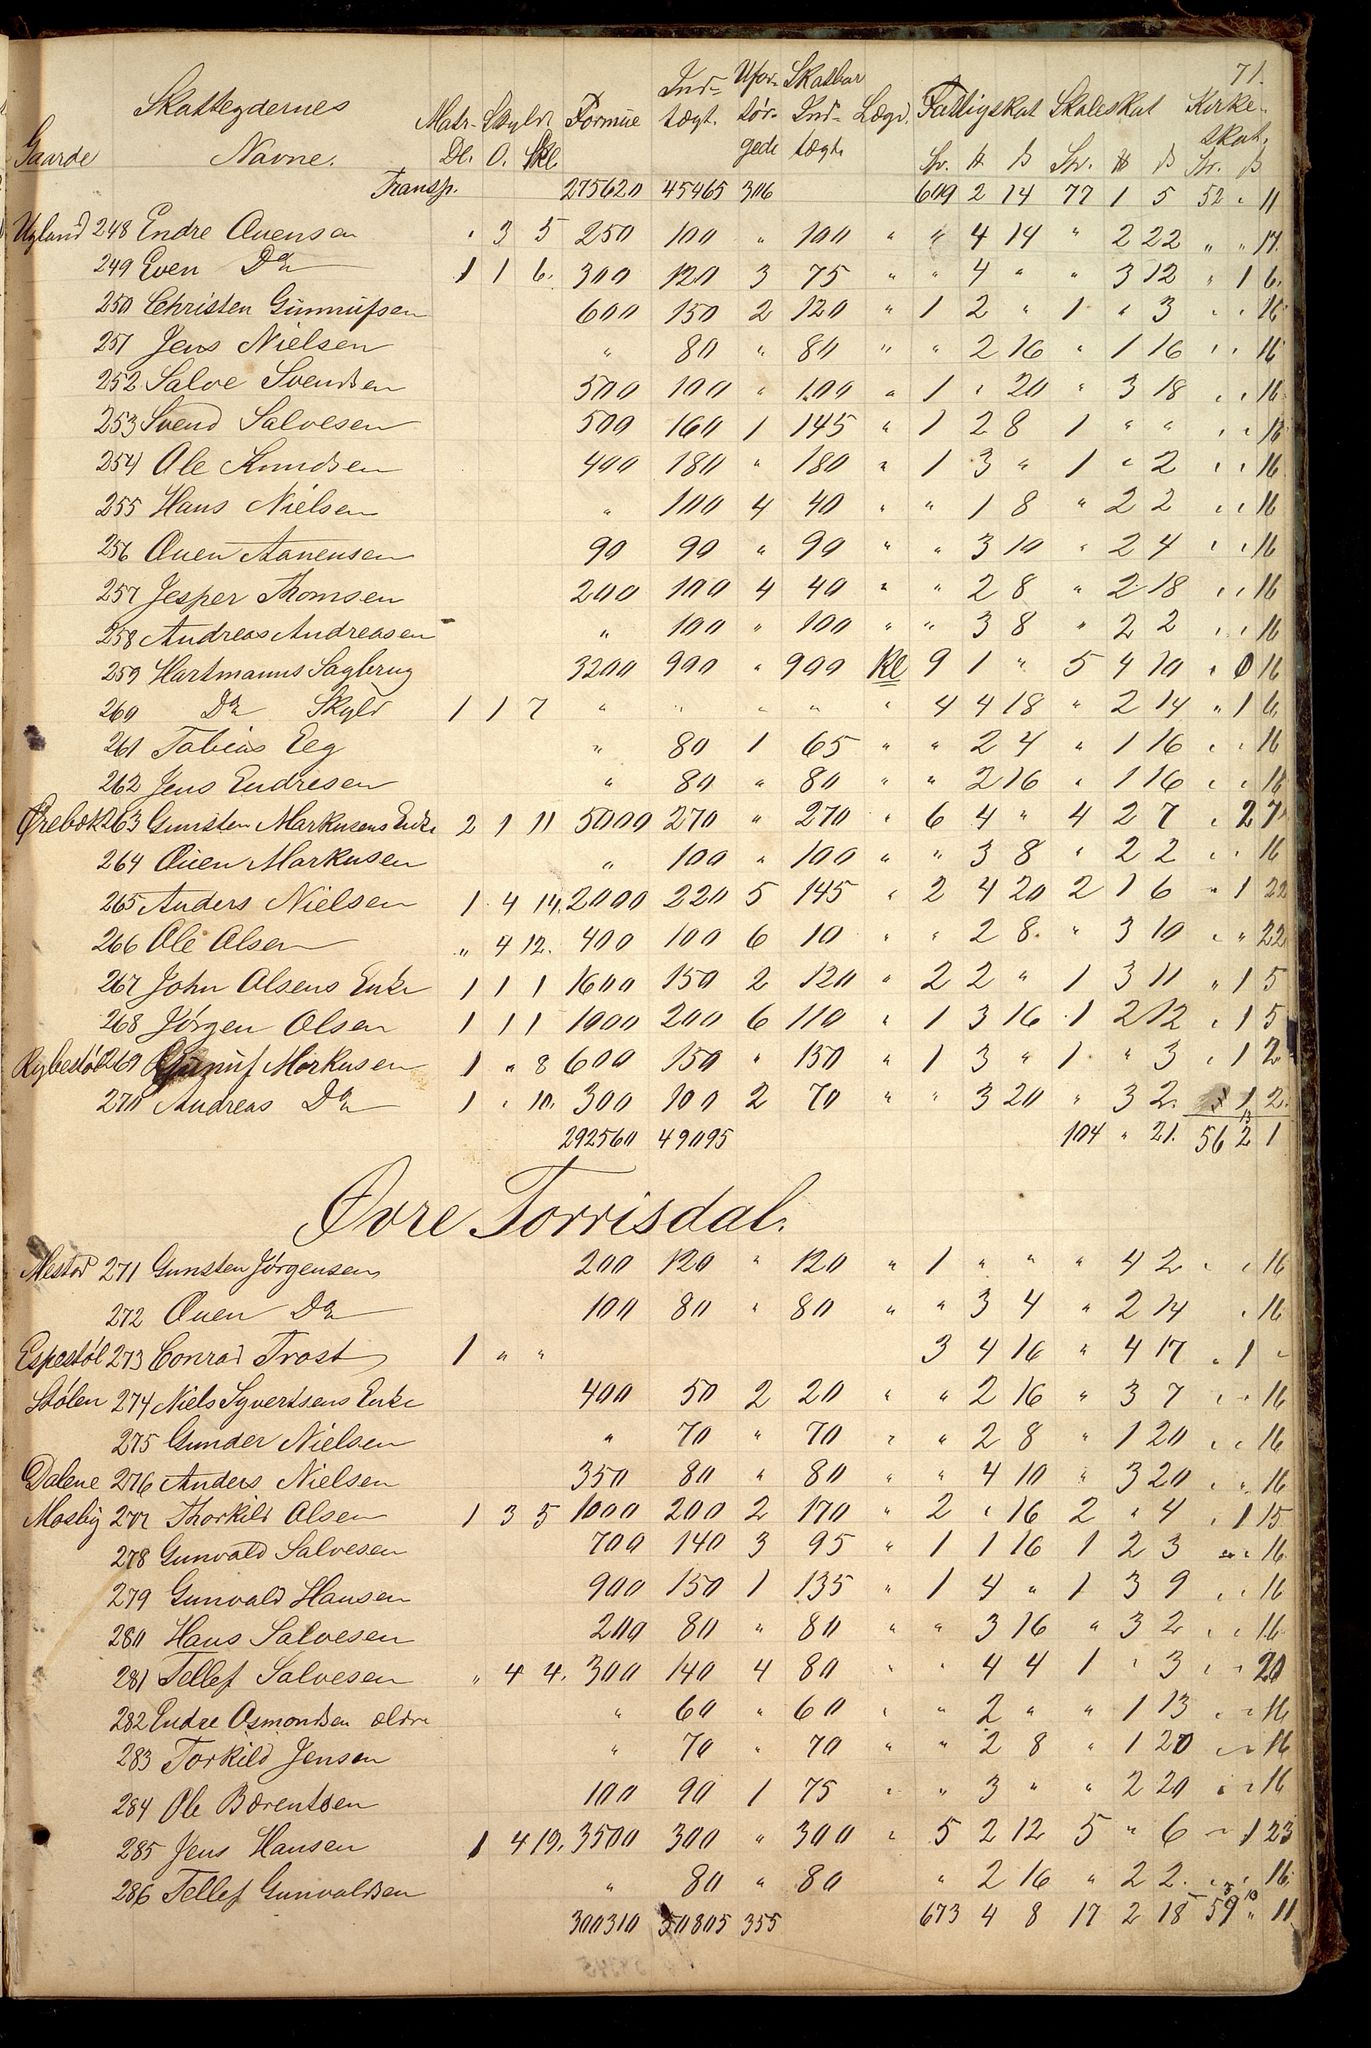 71.
Gaarde Skatteydernes Navne. Matr. Skyld Dl. O. Skl Formue Indtægt. Ufor-sør-gede Skatbar Ind-tægt. Lægd. Fattigskat Sp. # ß Skoleskat Sp. # ß Kirke-skat. Sp. ß
Transp. 275620 45465 306 609 2 14 77 1 5 52 " 11
Ugland 248 Endre Ouensen " 3 5 250 100 " 100 " " 4 14 " 2 22 " " 17.
249 Even Do 1 1 6. 300 120 3 75 " " 4 " " 3 12 " 1 6.
250 Christen Gunnufsen 600 150 2 120 " 1 2 " 1 " 3 " " 16
251 Jens Nielsen " 80 " 80 " " 2 16 " 1 16 " " 16
252 Salve Svendsen 500 100 " 100 " 1 " 20 " 3 18 " " 16
253 Svend Salvesen 500 160 1 145 " 1 2 8 1 " " " " 16
254 Ole Knudsen 400 180 " 180 " 1 3 " 1 " 2 " " 16
255 Hans Nielsen " 100 4 40 " " 1 8 " 2 2 " " 16
256 Ouen Aanensen 90 90 " 90 " " 3 10 " 2 4 " " 16
257 Jesper Thomsen 200 100 4 40 " " 2 8 " 2 18 " " 16
258 Andreas Andreasen " 100 " 100 " " 3 8 " 2 2 " " 16
259 Hartmanns Sagbrug 3200 900 " 900 Kl 9 1 " 5 4 10 " 0 16
260 Do Skyld 1 1 7 " " " " " 4 4 18 " 2 14 " 1 6
261 Tobias Eeg " 80 1 65 " " 2 4 " 1 16 " " 16
262 Jens Endresen " 80 " 80 " " 2 16 " 1 16 " " 16
Ørebæk 263 Gunsten Markusens Enke 2 1 11 5000 270 " 270 " 6 4 " 4 2 7 " 2 7
264 Ouen Markusen " 100 " 100 " " 3 8 " 2 2 " " 16
265 Anders Nielsen 1 4 14. 2000 220 5 145 " 2 4 20 2 1 6 " 1 22
266 Ole Olsen " 4 12. 400 100 6 10 " " 2 8. " 3 10 " " 22
267 John Olsens Enke 1 1 1 1600 150 2 120 " 2 2 " 1 3 11 " 1 5
268 Jørgen Olsen 1 1 1 1000 200 6 110 " 1 3 16 1 2 12 " 1 5
Rybestøl 269 Gunuf Markusen 1 " 8 600 150 " 150 " 1 3 " 1 " 3 " 1 2
270 Andreas Do 1 " 10. 300 100 2 70 " " 3 20 " 3 2. 1 2.
292560 49095 104 " 21. 56 2 1
Øvre Torrisdal.
Mestad 271 Gunsten Jørgensen 200 120 " 120 " 1 " " " 4 2 " " 16
272 Ouen Do 100 80 " 80 " " 3 4 " 2 14 " 16
Espestøl 273 Conrad Trost 1 " " 3 4 16 " 4 17 " 1 "
Stølen 274 Niels Syvertsens Enke 400 50 2 20 " " 2 16 " 3 7 " " 16
275 Gunder Nielsen " 70 " 70 " " 2 8 " 1 20 " " 16
Dalene 276 Anders Nielsen 350 80 " 80 " " 4 10 " 3 20 " " 16
Mosby 277 Thorkild Olsen 1 3 5 1000 200 2 170 " 2 " 16 2 " 4 " 1 15
278 Gunvald Salvesen 700 140 3 95 " 1 1 16 1 2 3 " " 16
279 Gunvald Hansen 900 150 1 135 " 1 4 " 1 3 9 " " 16
280 Hans Salvesen 200 80 " 80 " " 3 16 " 3 2 " " 16
281 Tellef Salvesen " 4 4. 300 140 4 80 " " 4 4 1 " 3 " " 20
282 Endre Osmondsen ældre " 60 " 60 " " 2 " " 1 13 " " 16
283 Torkild Jensen " 70 " 70 " " 2 8 " 1 20 " " 16
284 Ole Bærentsen 100 90 1 75 " " 3 " " 2 20 " " 16
285 Jens Hansen 1 4 19. 3500 300 " 300 " 5 2 12 5 " 6 " 1 23
286 Tellef Gunvaldsen " 80 " 80 " 2 16 " 2 2. " " 16
300310 50805 355 673 4 8 17 2 18 59 " 11